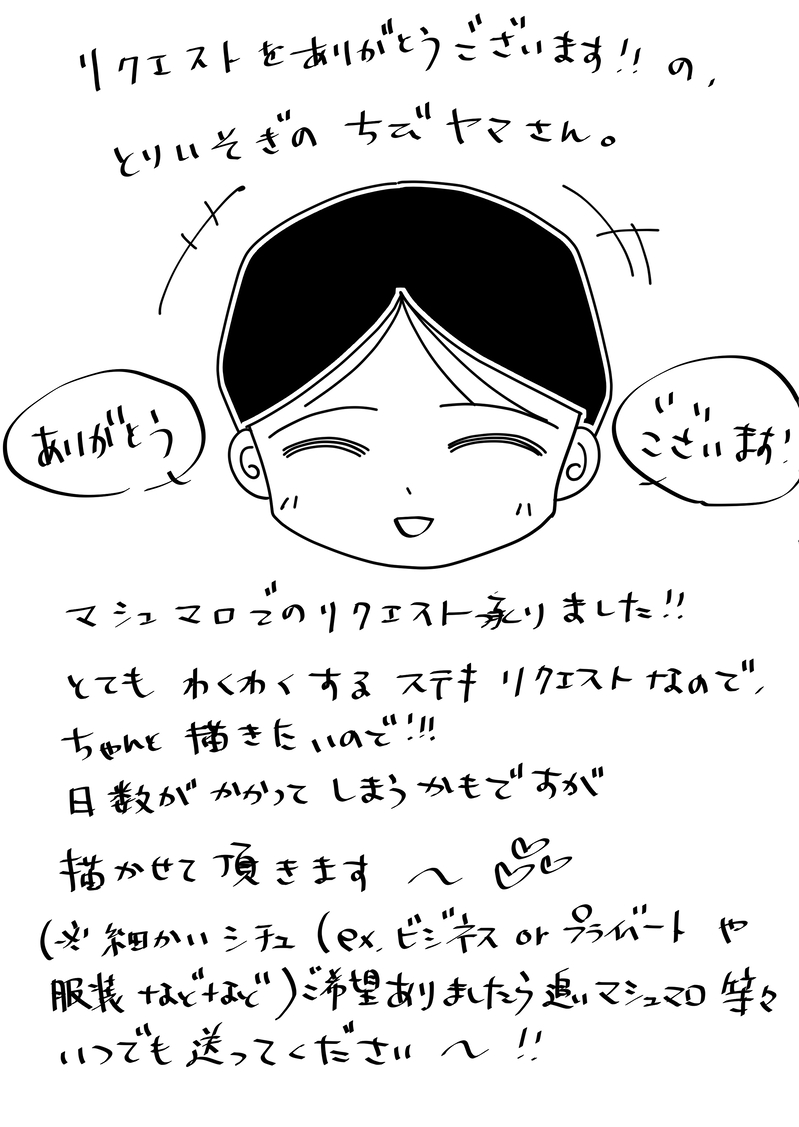 リクエストをありがとうございます!! の,
とりいそぎの ちびヤマさん。
ありがとう
ございます!
マシュマロでのリクエスト承りました!!
とても わくわくする ステキ リクエストなので,
ちゃんと 描きたいので!!!
日数が かかって しまうかもですが
描かせて 頂きます 〜 ♡♡♡
(※ 細かい シチュ (ex. ビジネス or プライバート や
服装 などなど) ご希望ありましたら 追いマシュマロ 等々
いつでも 送ってください 〜 !!